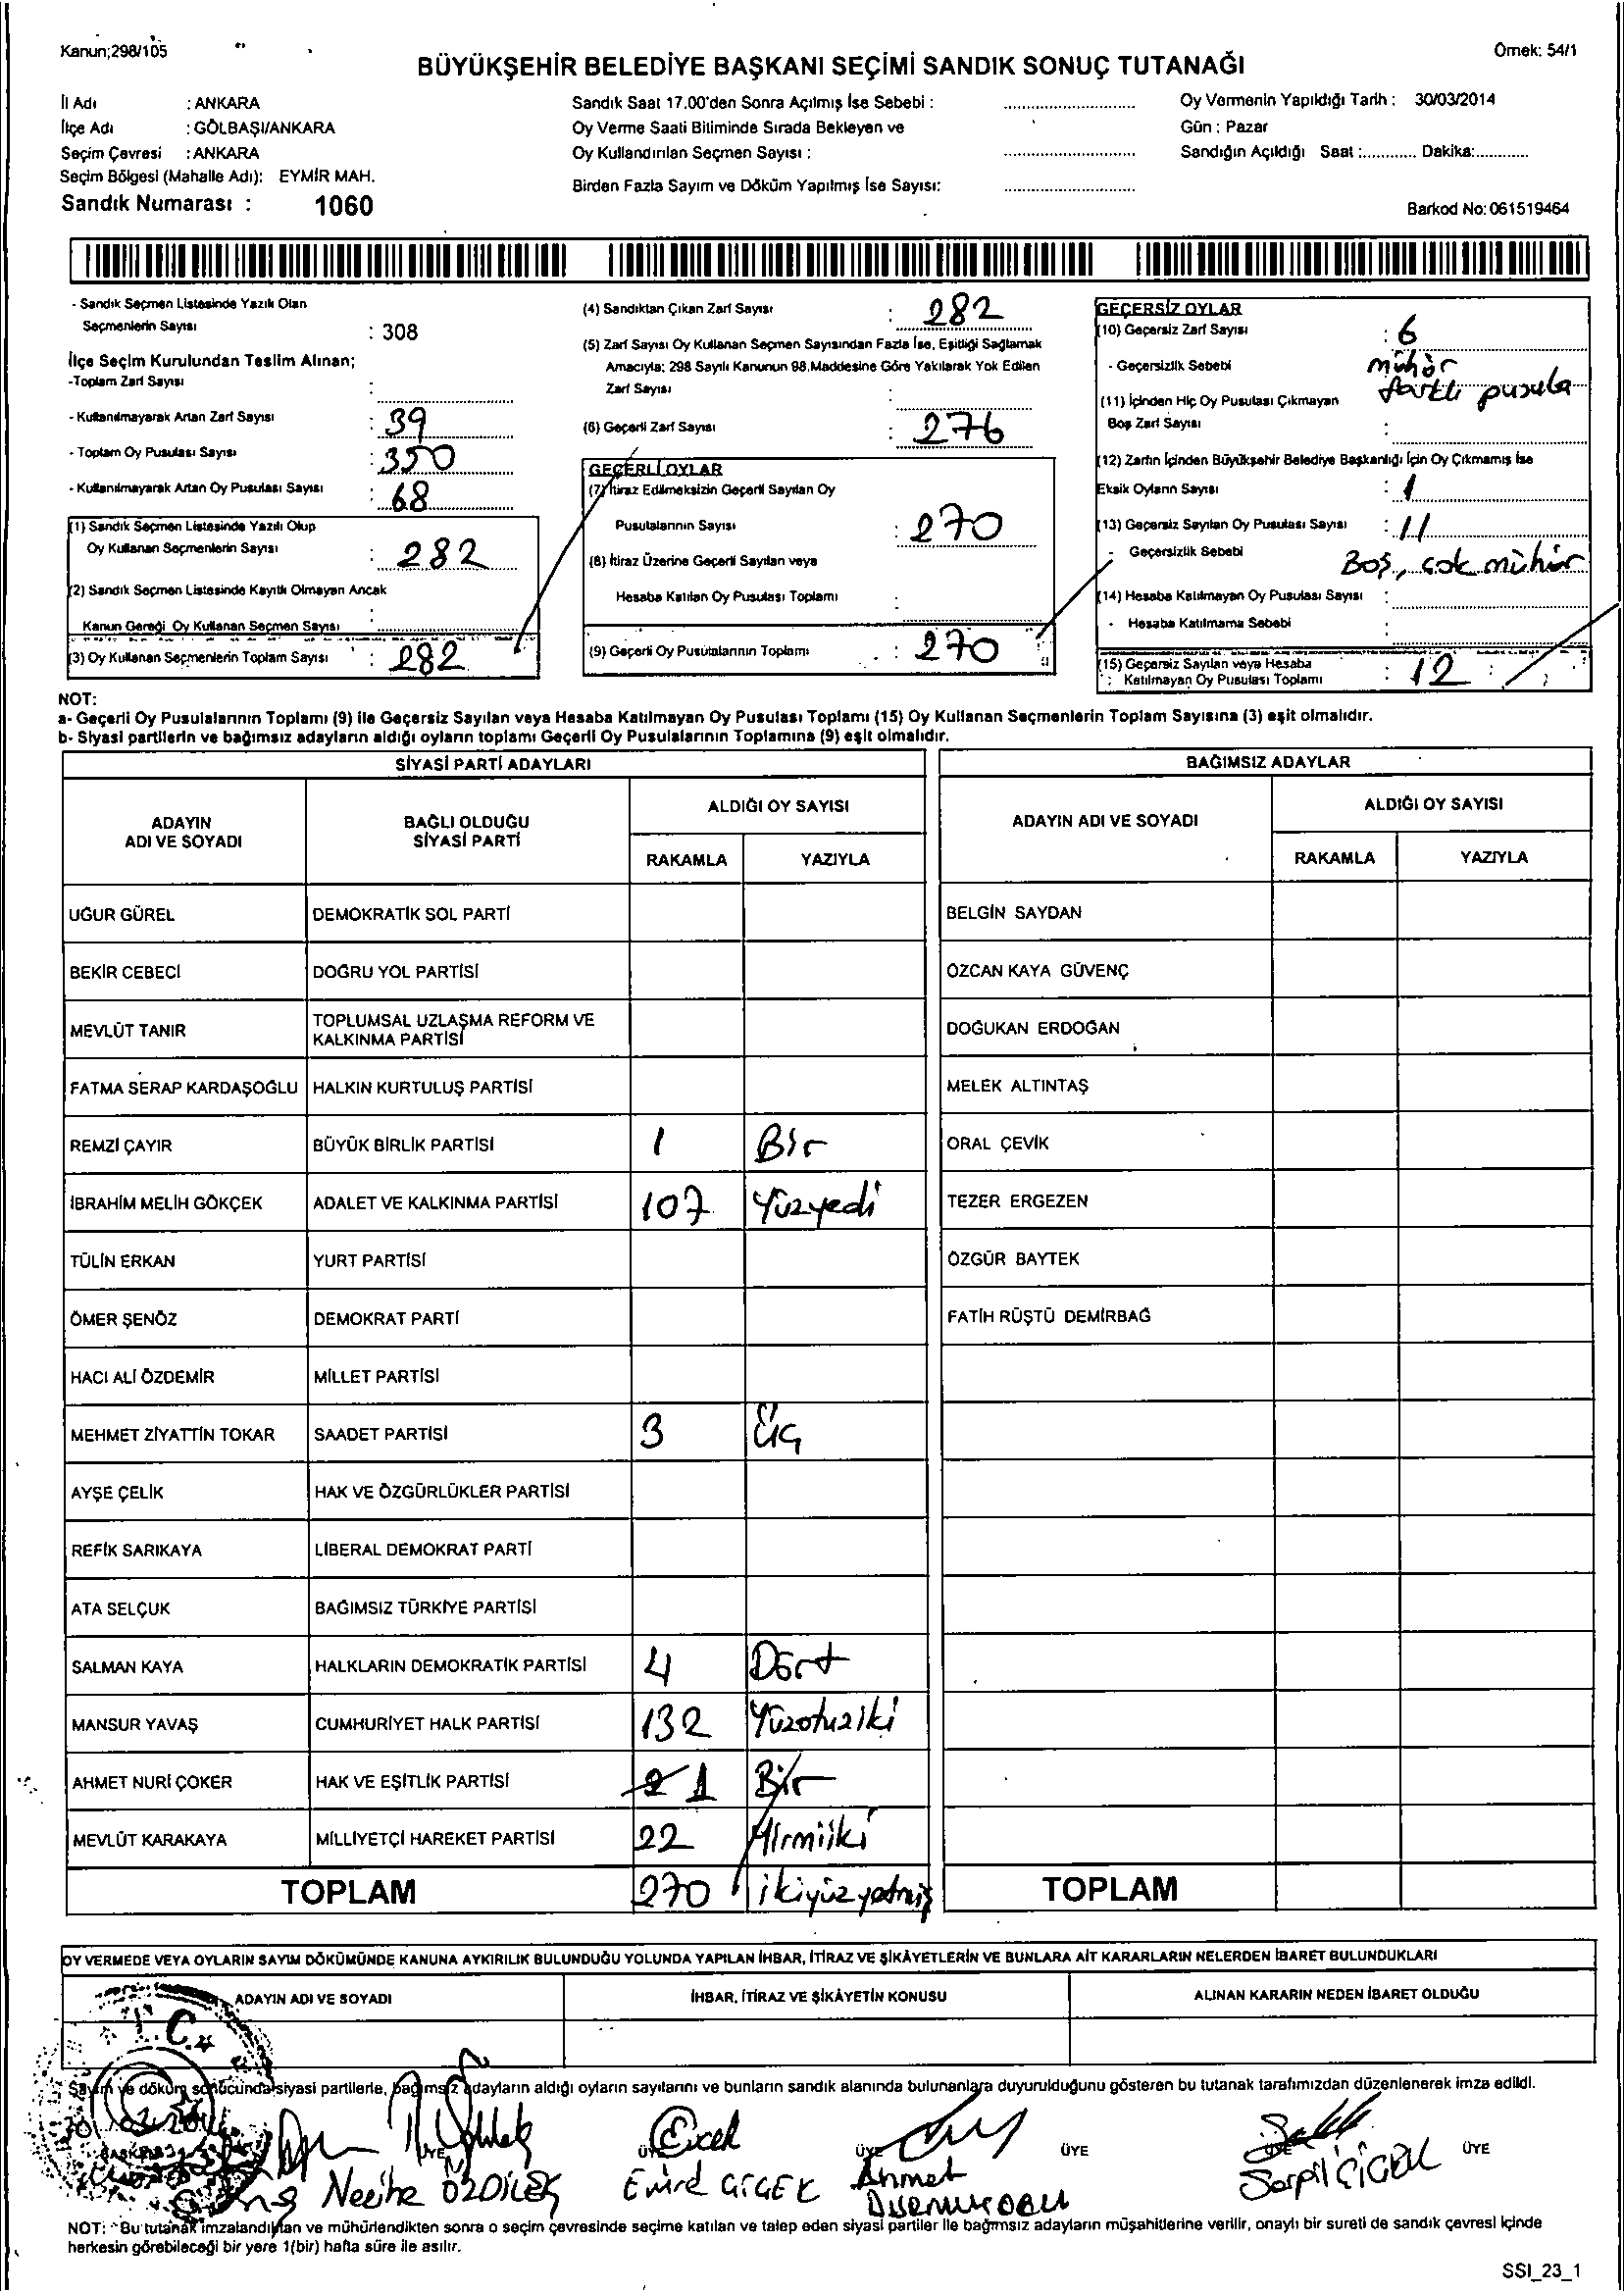 Kanun;298/105
Örnek: 54/1
BÜYÜKŞEHİR BELEDİYE BAŞKANI SEÇİMİ SANDIK SONUÇ TUTANAĞI
İl Adı : ANKARA
İlçe Adı : GÖLBAŞI/ANKARA
Seçim Çevresi : ANKARA
Seçim Bölgesi (Mahalle Adı): EYMİR MAH.
Sandık Numarası : 1060
Sandık Saat 17.00'den Sonra Açılmış İse Sebebi :
Oy Verme Saati Bitiminde Sırada Bekleyen ve
Oy Kullandırılan Seçmen Sayısı :
Birden Fazla Sayım ve Döküm Yapılmış İse Sayısı:
Oy Vermenin Yapıldığı Tarih : 30/03/2014
Gün : Pazar
Sandığın Açıldığı Saat :............ Dakika:............
Barkod No: 061519464
- Sandık Seçmen Listesinde Yazılı Olan
Seçmenlerin Sayısı : 308
İlçe Seçim Kurulundan Teslim Alınan;
-Toplam Zarf Sayısı :
- Kullanılmayarak Artan Zarf Sayısı : 39
- Toplam Oy Pusulası Sayısı : 350
- Kullanılmayarak Artan Oy Pusulası Sayısı : 68
(1) Sandık Seçmen Listesinde Yazılı Olup
Oy Kullanan Seçmenlerin Sayısı : 282
(2) Sandık Seçmen Listesinde Kayıtlı Olmayan Ancak
Kanun Gereği Oy Kullanan Seçmen Sayısı :
(3) Oy Kullanan Seçmenlerin Toplam Sayısı : 282
(4) Sandıktan Çıkan Zarf Sayısı : 282
(5) Zarf Sayısı Oy Kullanan Seçmen Sayısından Fazla İse, Eşitliği Sağlamak
Amacıyla; 298 Sayılı Kanunun 98.Maddesine Göre Yakılarak Yok Edilen
Zarf Sayısı :
(6) Geçerli Zarf Sayısı : 276
GEÇERLİ OYLAR
(7) İtiraz Edilmeksizin Geçerli Sayılan Oy
Pusulalarının Sayısı : 270
(8) İtiraz Üzerine Geçerli Sayılan veya
Hesaba Katılan Oy Pusulası Toplamı :
(9) Geçerli Oy Pusulalarının Toplamı : 270
GEÇERSİZ OYLAR
(10) Geçersiz Zarf Sayısı : 6
- Geçersizlik Sebebi mühür
farklı pusula
(11) İçinden Hiç Oy Pusulası Çıkmayan
Boş Zarf Sayısı :
(12) Zarfın İçinden Büyükşehir Belediye Başkanlığı İçin Oy Çıkmamış İse
Eksik Oyların Sayısı : 1
(13) Geçersiz Sayılan Oy Pusulası Sayısı : 11
- Geçersizlik Sebebi Boş, çok mühür
(14) Hesaba Katılmayan Oy Pusulası Sayısı :
- Hesaba Katılmama Sebebi
(15) Geçersiz Sayılan veya Hesaba
Katılmayan Oy Pusulası Toplamı : 12
NOT:
a- Geçerli Oy Pusulalarının Toplamı (9) ile Geçersiz Sayılan veya Hesaba Katılmayan Oy Pusulası Toplamı (15) Oy Kullanan Seçmenlerin Toplam Sayısına (3) eşit olmalıdır.
b- Siyasi partilerin ve bağımsız adayların aldığı oyların toplamı Geçerli Oy Pusulalarının Toplamına (9) eşit olmalıdır.
SİYASİ PARTİ ADAYLARI
ADAYIN ADI VE SOYADI BAĞLI OLDUĞU SİYASİ PARTİ ALDIĞI OY SAYISI
RAKAMLA YAZIYLA
UĞUR GÜREL DEMOKRATİK SOL PARTİ
BEKİR CEBECİ DOĞRU YOL PARTİSİ
MEVLÜT TANIR TOPLUMSAL UZLAŞMA REFORM VE KALKINMA PARTİSİ
FATMA SERAP KARDAŞOĞLU HALKIN KURTULUŞ PARTİSİ
REMZİ ÇAYIR BÜYÜK BİRLİK PARTİSİ 1 Bir
İBRAHİM MELİH GÖKÇEK ADALET VE KALKINMA PARTİSİ 107 Yüzyedi
TÜLİN ERKAN YURT PARTİSİ
ÖMER ŞENÖZ DEMOKRAT PARTİ
HACI ALİ ÖZDEMİR MİLLET PARTİSİ
MEHMET ZİYATTİN TOKAR SAADET PARTİSİ 3 Üç
AYŞE ÇELİK HAK VE ÖZGÜRLÜKLER PARTİSİ
REFİK SARIKAYA LİBERAL DEMOKRAT PARTİ
ATA SELÇUK BAĞIMSIZ TÜRKİYE PARTİSİ
SALMAN KAYA HALKLARIN DEMOKRATİK PARTİSİ 4 Dört
MANSUR YAVAŞ CUMHURİYET HALK PARTİSİ 132 Yüzotuziki
AHMET NURİ ÇOKER HAK VE EŞİTLİK PARTİSİ 1 Bir
MEVLÜT KARAKAYA MİLLİYETÇİ HAREKET PARTİSİ 22 Yirmiiki
TOPLAM 270 ikiyüzyetmiş
BAĞIMSIZ ADAYLAR
ADAYIN ADI VE SOYADI ALDIĞI OY SAYISI
RAKAMLA YAZIYLA
BELGİN SAYDAN
ÖZCAN KAYA GÜVENÇ
DOĞUKAN ERDOĞAN
MELEK ALTINTAŞ
ORAL ÇEVİK
TEZER ERGEZEN
ÖZGÜR BAYTEK
FATİH RÜŞTÜ DEMİRBAĞ
TOPLAM
OY VERMEDE VEYA OYLARIN SAYIM DÖKÜMÜNDE KANUNA AYKIRILIK BULUNDUĞU YOLUNDA YAPILAN İHBAR, İTİRAZ VE ŞİKÂYETLERİN VE BUNLARA AİT KARARLARIN NELERDEN İBARET BULUNDUKLARI
ADAYIN ADI VE SOYADI İHBAR, İTİRAZ VE ŞİKÂYETİN KONUSU ALINAN KARARIN NEDEN İBARET OLDUĞU
T.C.
Sayım ve döküm sonucunda siyasi partilerle, bağımsız adayların aldığı oyların sayılarını ve bunların sandık alanında bulunanlara duyurulduğunu gösteren bu tutanak tarafımızdan düzenlenerek imza edildi.
ÜYE ÜYE ÜYE ÜYE ÜYE
Necihe ÖZDİLEK Emre ÇİÇEK Ahmet Serpil ÇİÇEK
NOT: Bu tutanak imzalandıktan ve mühürlendikten sonra o seçim çevresinde seçime katılan ve talep eden siyasi partiler ile bağımsız adayların müşahitlerine verilir, onaylı bir sureti de sandık çevresi içinde
herkesin görebileceği bir yere 1(bir) hafta süre ile asılır.
SSI_23_1